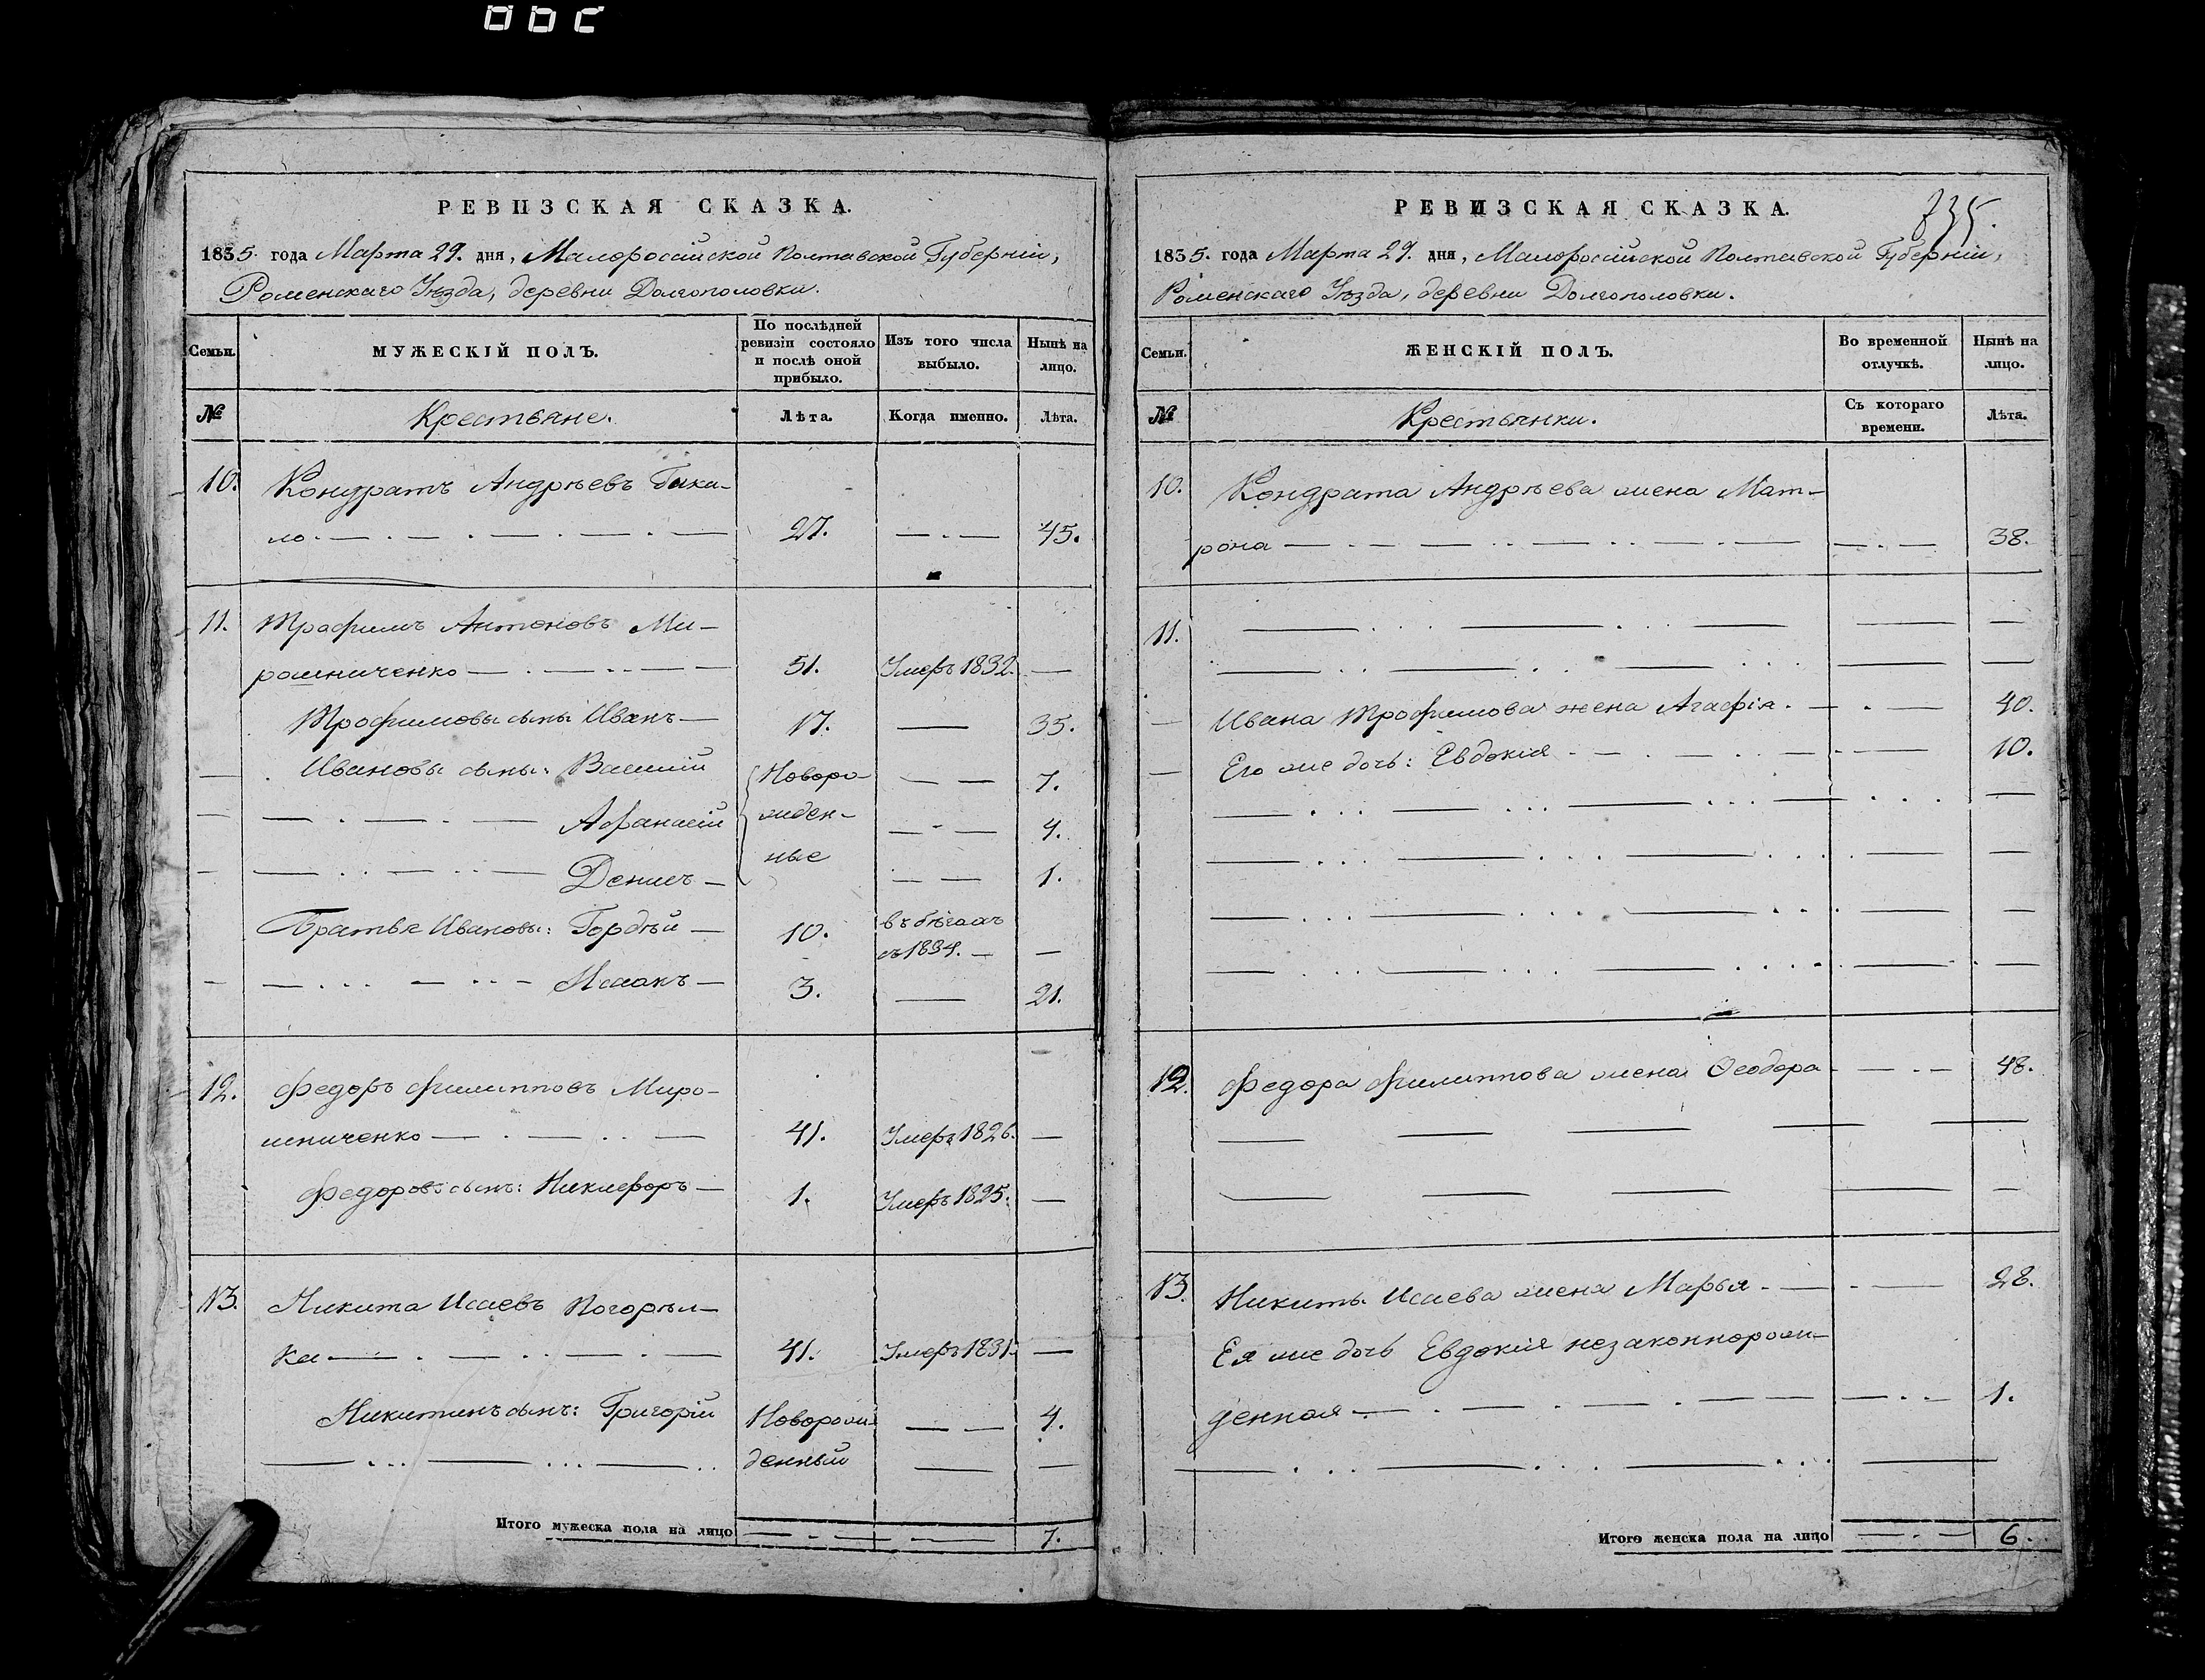 РЕВИЗСКАЯ СКАЗКА.
1835. года Марта 29. дня, Малороссійской Полтавской Губерніи,
Роменскаго Уѣзда, деревни Долгополовки.
Семьи. МУЖЕСКІЙ ПОЛЪ. По послѣдней ревизіи состояло и послѣ оной прибыло. Изъ того числа выбыло. Нынѣ на лицо.
№ Крестьяне. Лѣта. Когда именно. Лѣта.
10. Кондратъ Андрѣевъ Гака-
ло. 27. 45.
11. Трофимъ Антоновъ Ми-
рошниченко 51. Умеръ 1832. —
Трофимовы сыны Иванъ 17. — 35.
Ивановы сыны: Василій Новоро- 7.
Афанасій жден- 4.
Денисъ ные 1.
Братья Ивановы: Гордѣй 10. въ бѣгахъ
съ 1834. —
Исаакъ 3. — 21.
12. Федоръ Филипповъ Миро-
шниченко 41. Умеръ 1826. —
Федоровъ сынъ: Никифоръ 1. Умеръ 1825. —
13. Никита Исаевъ Погорѣл-
ка 41. Умеръ 1831. —
Никитинъ сынъ: Григорій Новорож- 4.
денный
Итого мужеска пола на лицо 7.
РЕВИЗСКАЯ СКАЗКА.
735.
1835. года Марта 29. дня, Малороссійской Полтавской Губерніи,
Роменскаго Уѣзда, деревни Долгополовки.
Семьи. ЖЕНСКІЙ ПОЛЪ. Во временной отлучкѣ. Нынѣ на лицо.
№ Крестьянки. Съ котораго времени. Лѣта.
10. Кондрата Андрѣева жена Мат-
рона 38.
11.
Ивана Трофимова жена Агафія. 40.
Его же дочь: Евдокія 10.
12. Федора Филиппова жена Ѳеодора 48.
13. Никиты Исаева жена Марья 28.
Ея же дочь Евдокія незаконнорож-
денная 1.
Итого женска пола на лицо 6.